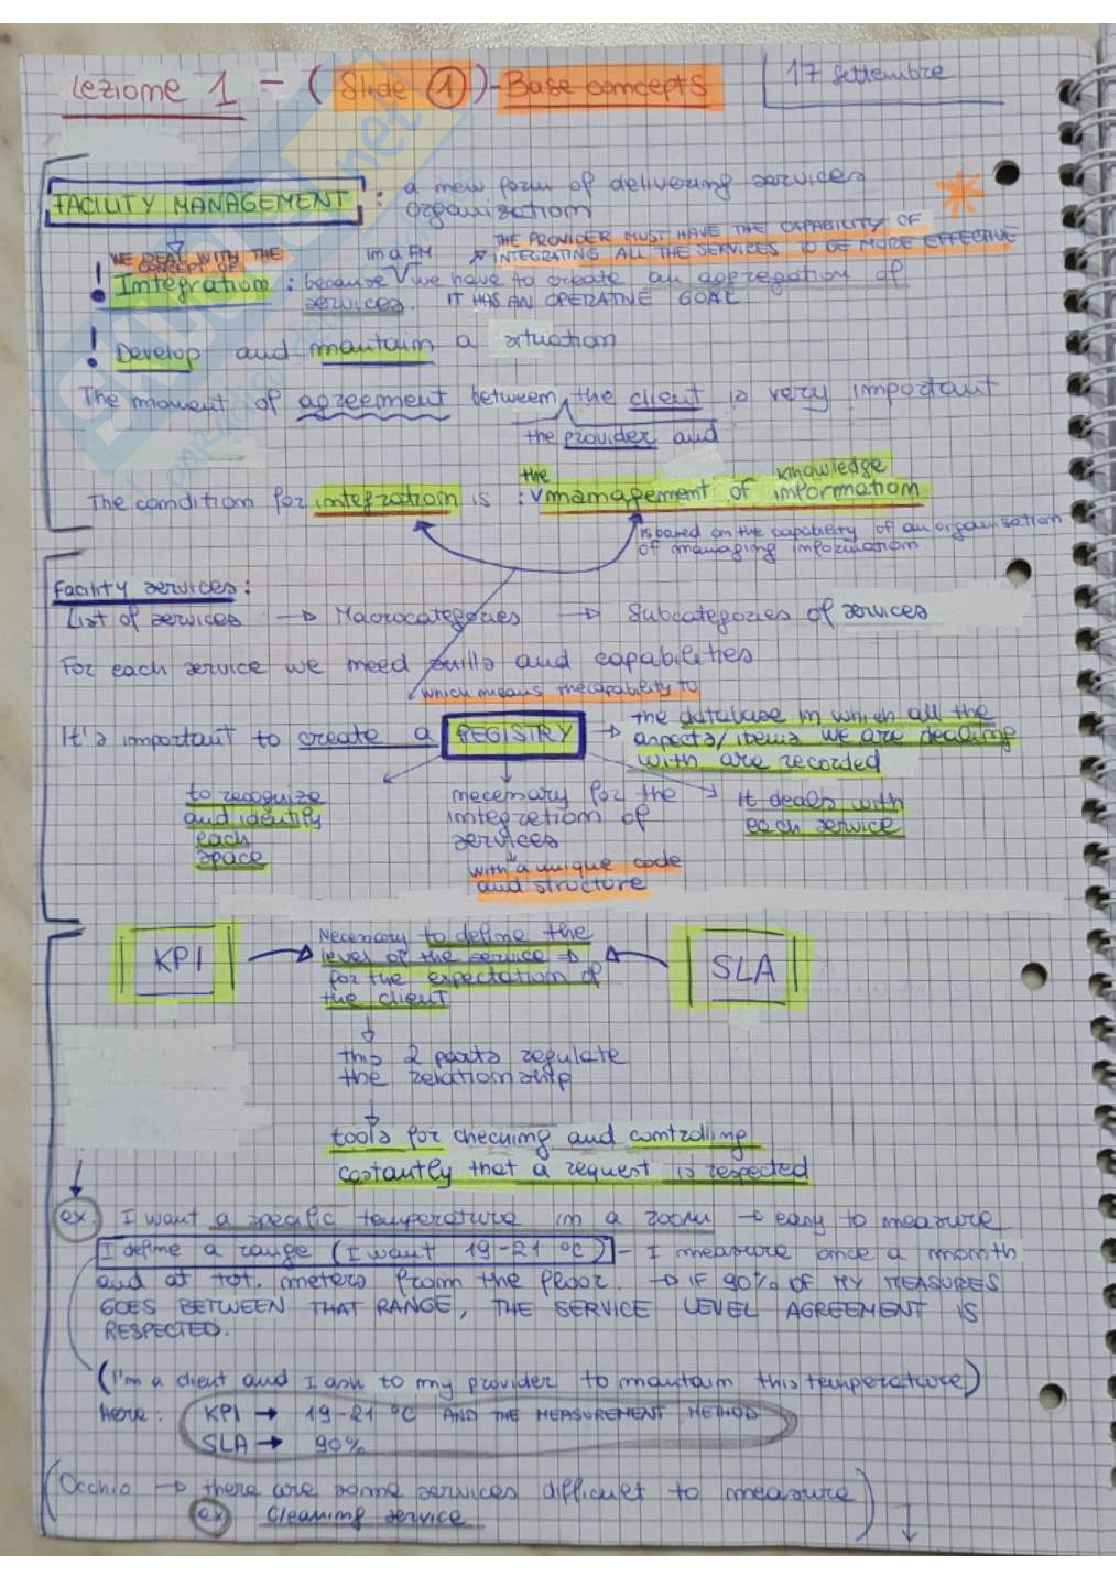 Lezione 1 - (Slide 1) - Base concepts
17 settembre
FACILITY MANAGEMENT : a new form of delivering services
organisation
WE DEAL WITH THE
CONCEPT OF
THE PROVIDER MUST HAVE THE CAPABILITY OF
INTEGRATING ALL THE SERVICES TO BE MORE EFFECTIVE
in a FM
! Integration : because we have to create an aggregation of
services. IT HAS AN OPERATIVE GOAL
! Develop and mantain a situation
The moment of agreement between the client is very important
the provider and
the knowledge
The condition for integration is : management of information
is based on the capability of an organisation
of managing information
Facility services:
List of services → Macrocategories → Subcategories of services
For each service we need skills and capabilities
which means the capability to
It's important to create a REGISTRY → the database in which all the
aspects/items we are dealing
with are recorded
to recognize
and identify
each
space
necessary for the
integration of
services
with a unique code
and structure
it deals with
each service
KPI
Necessary to define the
level of the service →
for the expectation of
the client
SLA
this 2 parts regulate
the relationship
tools for checking and controlling
costantly that a request is respected
ex. I want a specific temperature in a room → easy to measure
I define a range (I want 19-21 °C) - I measure once a month
and at tot. meters from the floor. → IF 90% OF MY MEASURES
GOES BETWEEN THAT RANGE, THE SERVICE LEVEL AGREEMENT IS
RESPECTED.
(I'm a client and I ask to my provider to mantain this temperature)
Here: KPI → 19-21 °C AND THE MEASUREMENT METHOD
SLA → 90%
(Occhio → there are some services difficult to measure)
ex Cleaning service